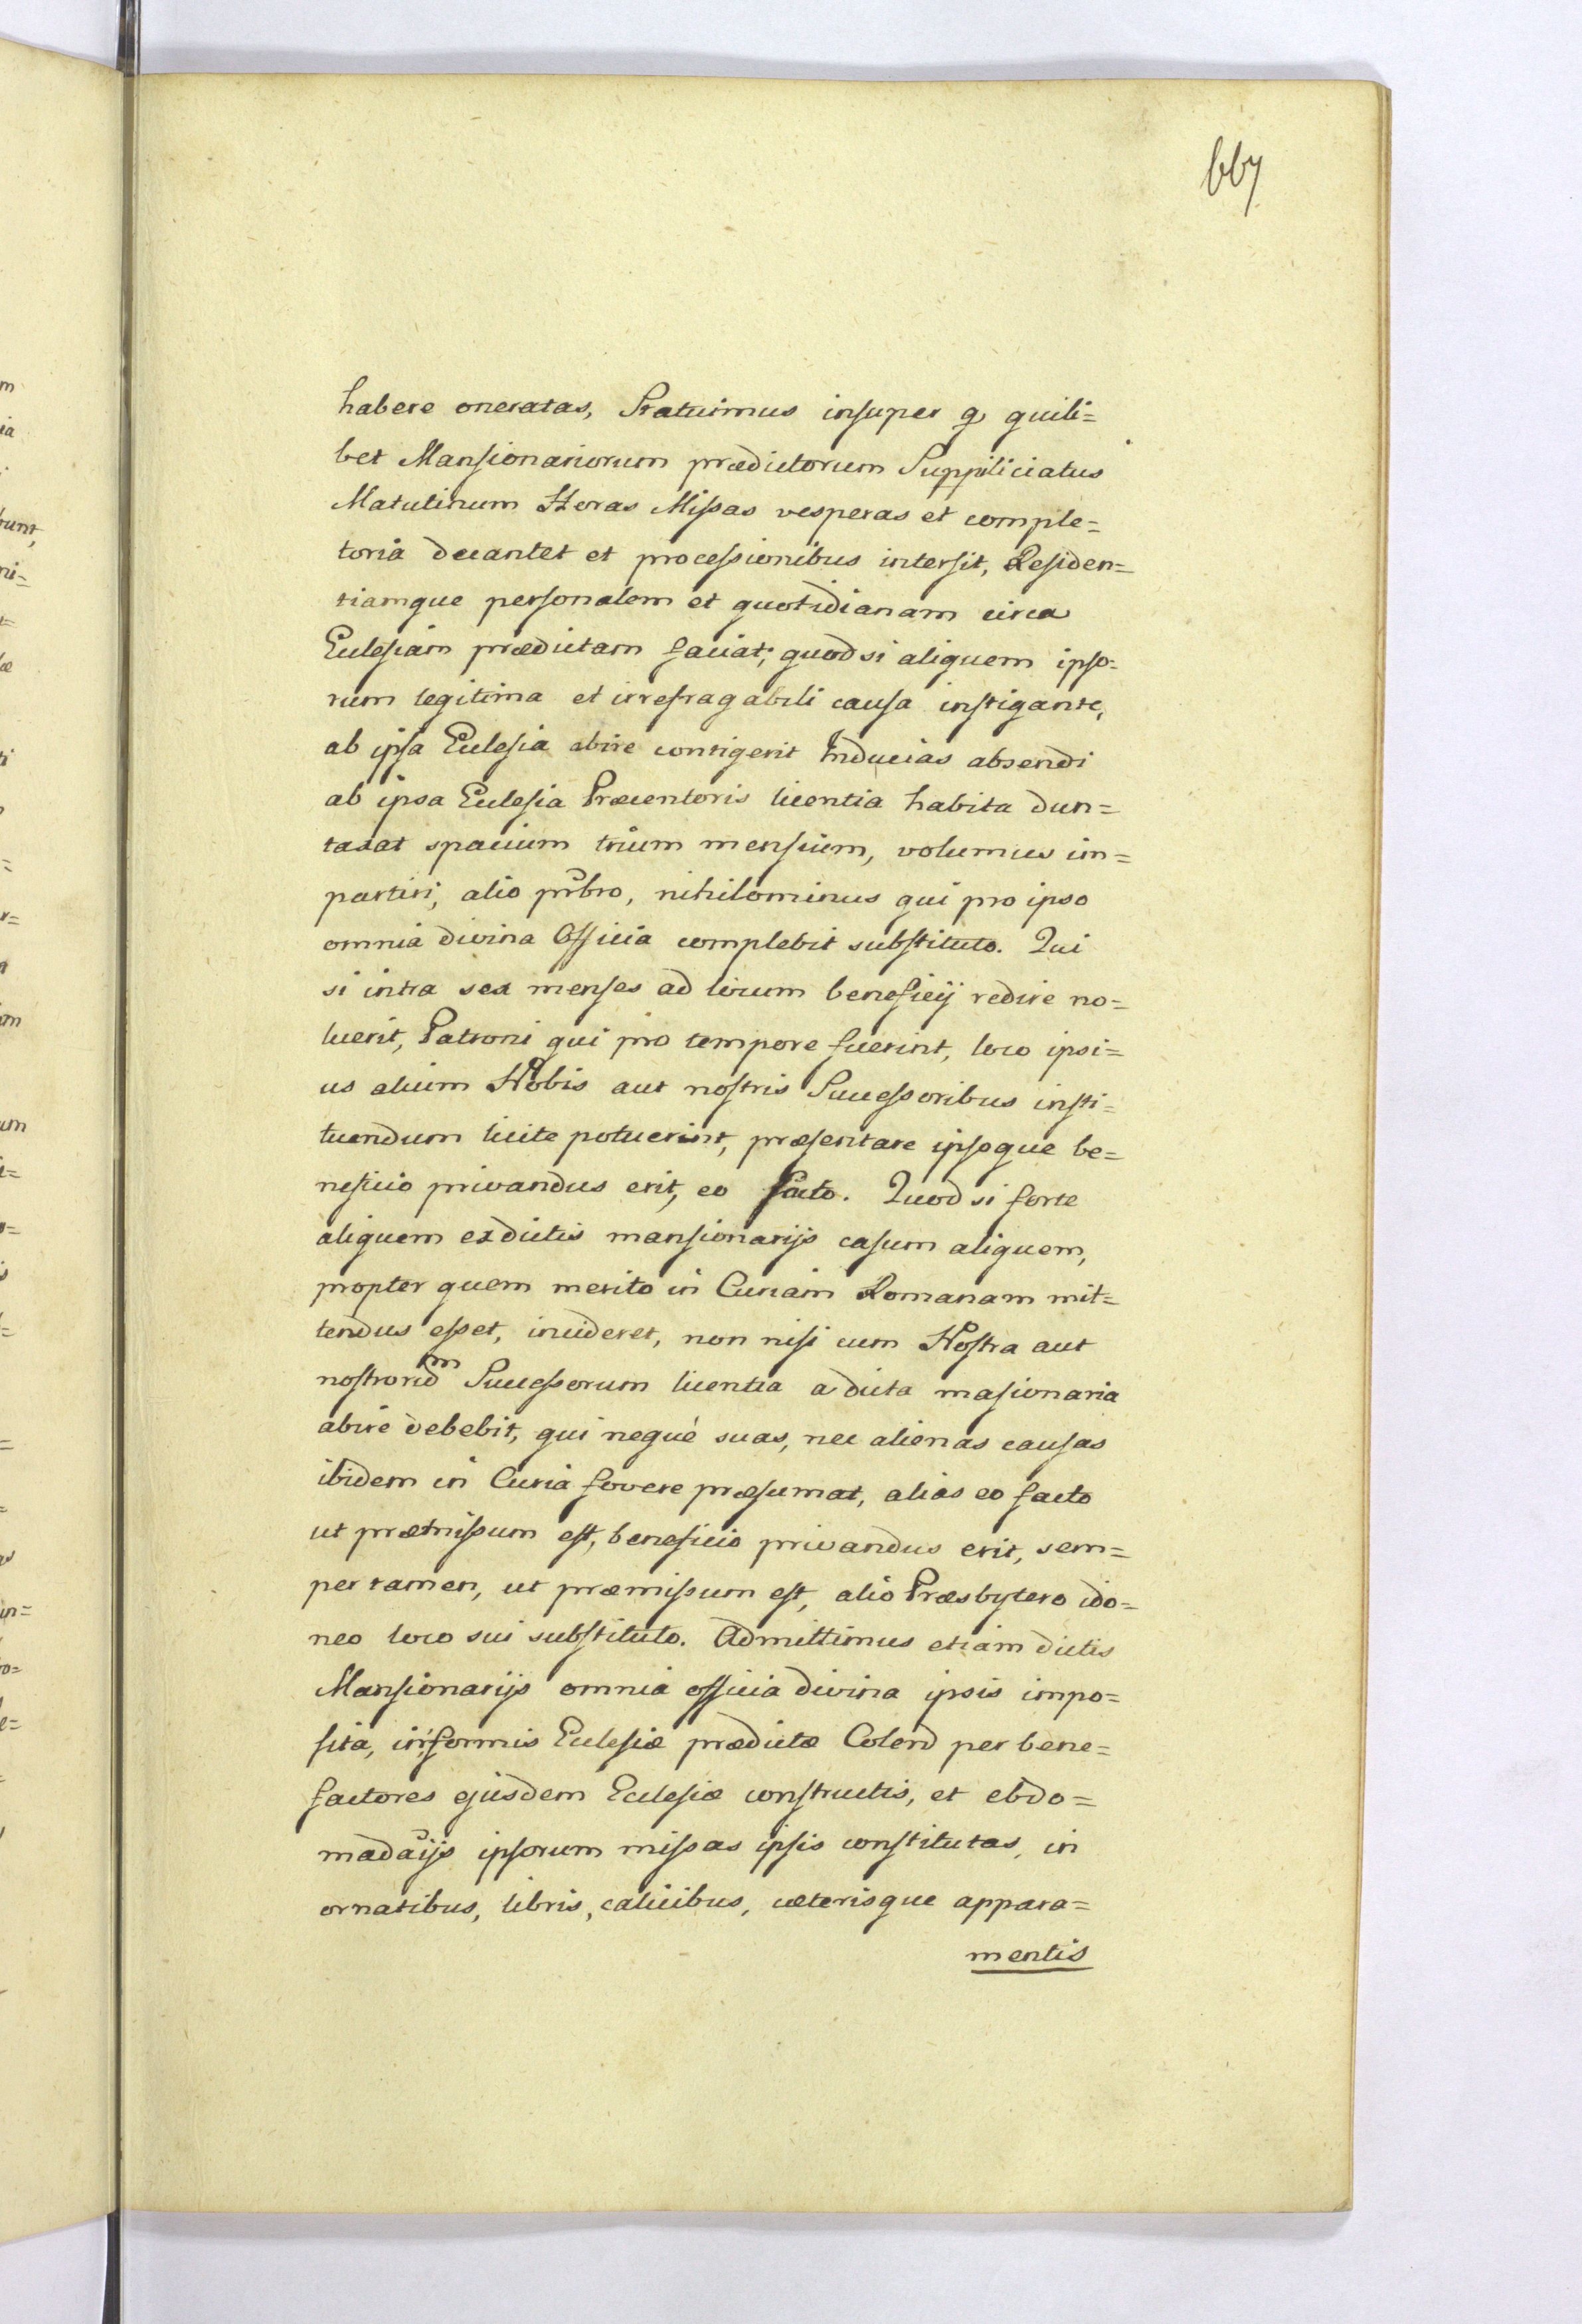 667
habere oneratas, Statuimus insuper q quili=
bet Mansionariorum prædictorum Suppiliciatus
Matutinum Horas Missas vesperas et comple=
toria decantet et processionibus intersit, Residen=
tiamque personalem et quotidianam circa
Ecclesiam prædictam faciat; quod si aliquem ipso=
rum legitima et irrefragabili causa instigante,
ab ipsa Ecclesia abire contigerit Inducias absendi
ab ipsa Ecclesia Præcentoris licentia habita dun=
taxat spacium trium mensium, volumus im=
partiri, alio prbro, nihilominus qui pro ipso
omnia divina Officia complebit substituto. Qui
si intra sex menses ad locum beneficij redire no=
luerit, Patroni qui pro tempore fuerint, loco ipsi=
us alium Nobis aut nostris Successoribus insti=
tuendum licite potuerint, præsentare ipsoque be=
neficio privandus erit, eo facto. Quod si forte
aliquem ex dictis mansionarijs casum aliquem,
propter quem merito in Curiam Romanam mit=
tendus esset, incideret, non nisi cum Nostra aut
nostrorum Successorum licentia a dicta masionaria
abire debebit, qui neque suas, nec alienas causas
ibidem in Curia fovere præsumat, alias eo facto
ut præmissum est, beneficio privandus erit, sem=
per tamen, ut præmissum est, alio Præsbytero ido=
neo loco sui substituto. Admittimus etiam dictis
Mansionarijs omnia officia divina ipsis impo=
sita, in formis Ecclesiæ prædictæ Colend per bene=
factores ejusdem Ecclesiæ constructis, et ebdo=
madaijs ipsorum missas ipsis constitutas, in
ornatibus, libris, calicibus, cæterisque appara=
mentis